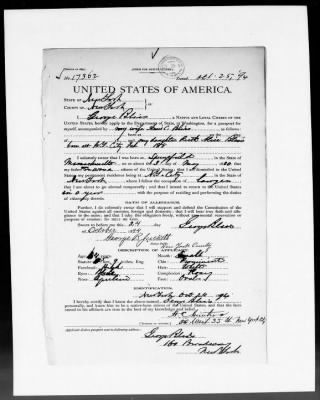 No. 17362 Issued Oct. 25, 94
UNITED STATES OF AMERICA.
STATE OF New York
COUNTY OF New York
I, George Bliss, A NATIVE AND LOYAL CITIZEN OF THE
UNITED STATES, hereby apply to the Department of State, at Washington, for a passport for
myself, accompanied by my wife Anais C. Bliss, as follows:
born at
and my daughter Ruth Alice Bliss
born at N.Y. City Feb.
I solemnly swear that I was born at Springfield, in the State of
Massachusetts, on the 3d day of May, 1830; that
citizen of the United States; that I am domiciled in the United
States, my permanent residence being at N.Y. City, in the State of
New York, where I follow the occupation of Lawyer;
that I am about to go abroad temporarily; and that I intend to return to the United States
in a year with the purpose of residing and performing the duties
of citizenship therein.
OATH OF ALLEGIANCE.
Further, I do solemnly swear that I will support and defend the Constitution of the
United States against all enemies, foreign and domestic; that I will bear true faith and allegiance
to the same; and that I take this obligation freely, without any mental reservation or
purpose of evasion: SO HELP ME GOD.
Sworn to before me this 24 day
of October, 1894 George Bliss
George R.
New York County
DESCRIPTION OF APPLICANT.
Age: 64 years. Mouth:
Stature: feet, inches, Eng. Chin: Prominent
Forehead: High Hair:
Eyes: Complexion:
Nose: Aquiline Face: Oval
IDENTIFICATION.
New York, Oct 24, 1894
I hereby certify that I know the above-named George Bliss
personally, and know him to be a native-born citizen of the United States, and that the facts
stated in his affidavit are true to the best of my knowledge and belief.
West 33 St New York City
George Bliss
160 Broadway
New York